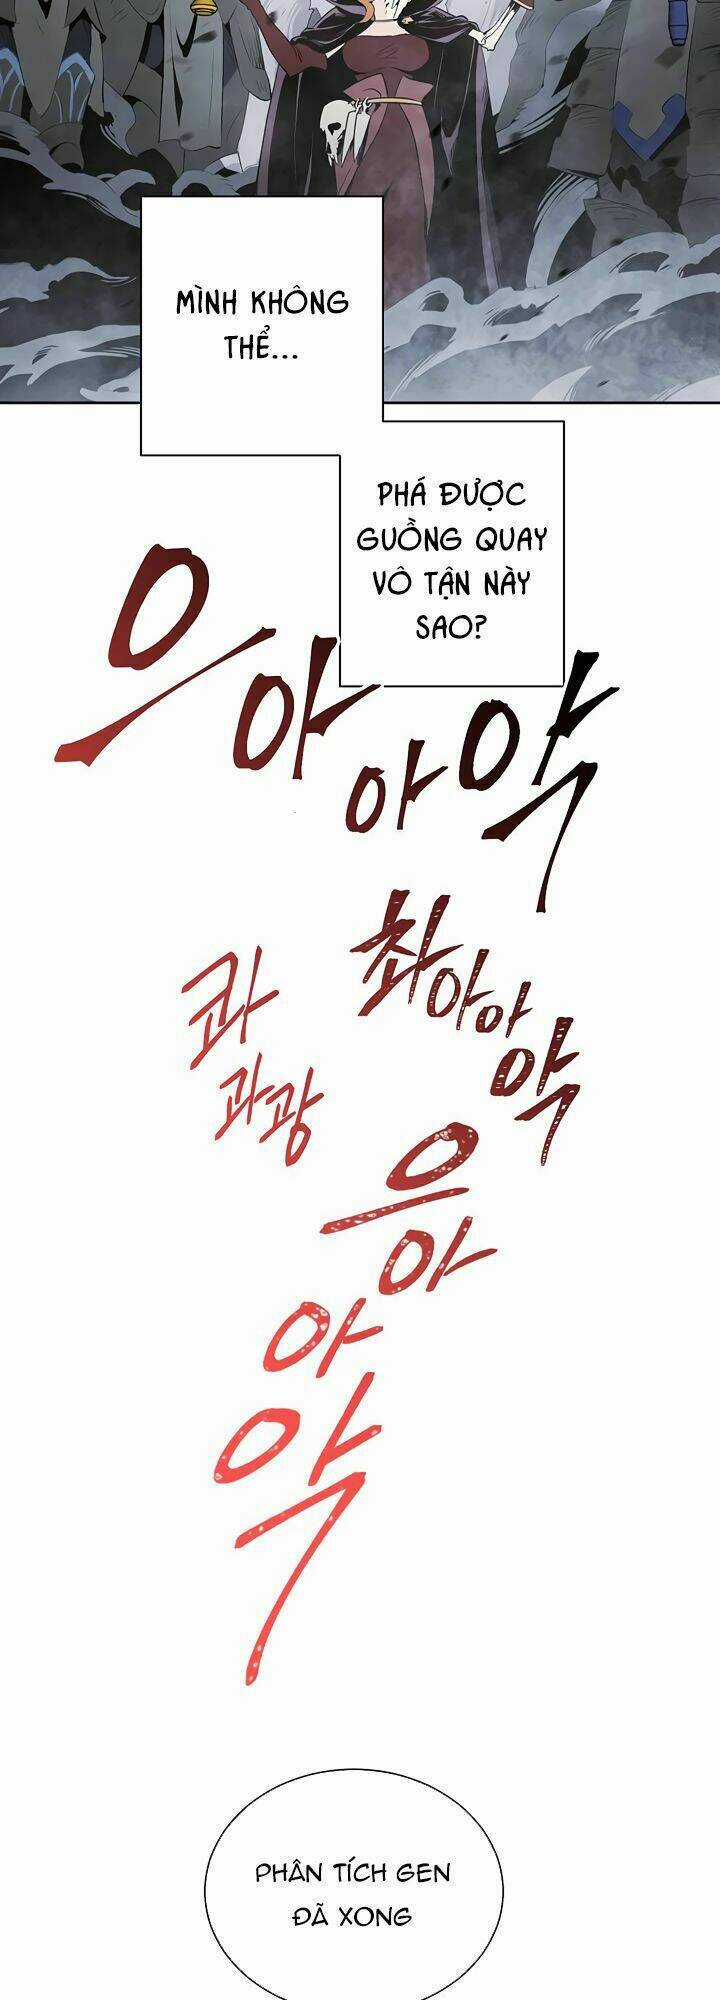 MÌNH KHÔNG
THỂ...
PHÁ ĐƯỢC
GUỒNG QUAY
VÔ TẬN NÀY
SAO?
으아아악
최아아악
콰과광
으아아악
PHÂN TÍCH GEN
ĐÃ XONG